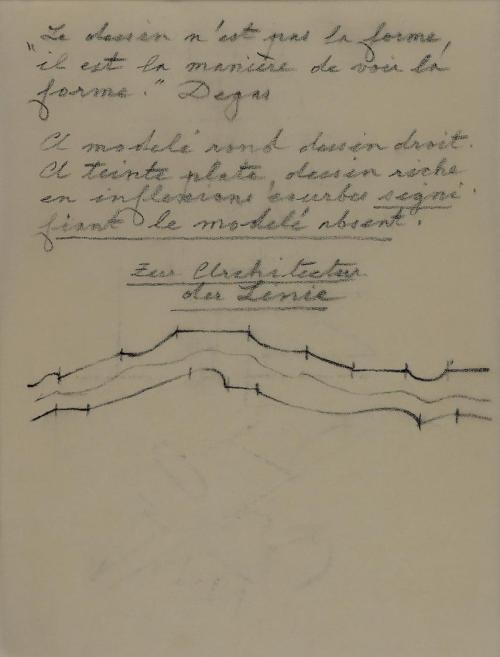 Le dessin n'est pas la forme,
"il est la manière de voir la
forme." Degas
A modelé rond dessin droit.
A teinte plate, dessin riche
en inflexions courbes signi-
fiant le modelé absent.
Zur Architectur
der Linie